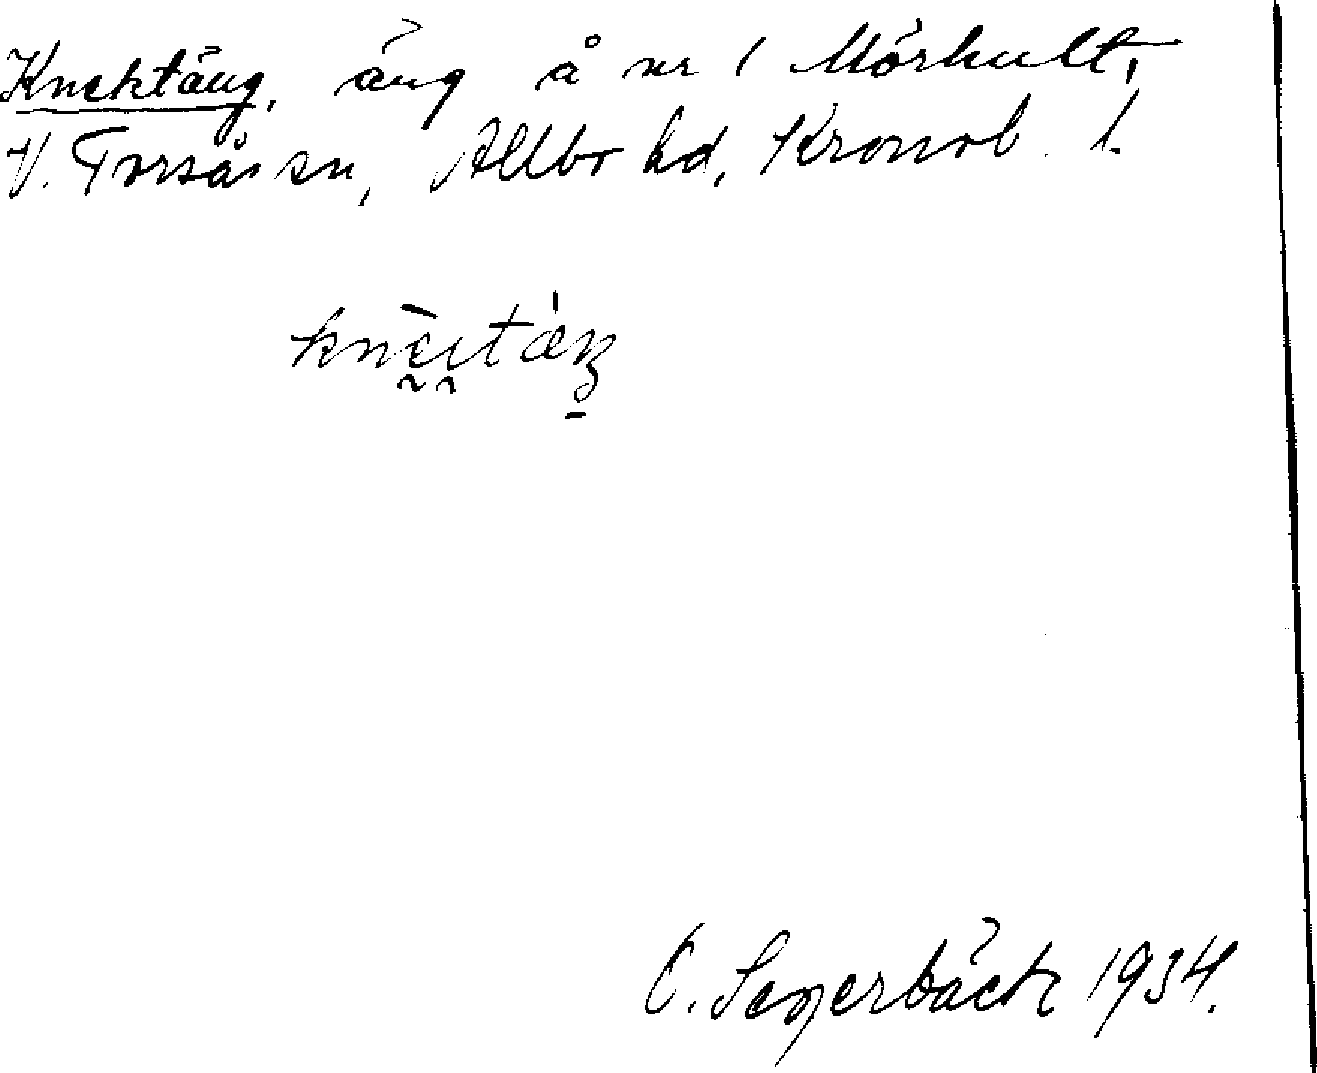 Knektäng, äng å nr 1 Mörhult,
V. Torsås sn, Allbo hd, Kronob. l.
C. Segerbäck 1934.